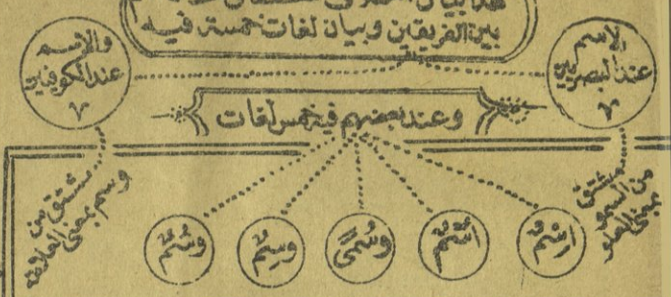 هذا بيان
بين الفريقين وبيان لغات خمسة فيه
الاسم
عند البصريين
٧
والاسم
عند الكوفيين
٧
وعند بعضهم فيه خمس لغات
مشتق
من السمو
بمعنى العلو
مشتق من
وسم بمعنى العلامة
اِسْمٌ
اُسْمٌ
وسُمًى
وسِمٌ
وسُمٌ